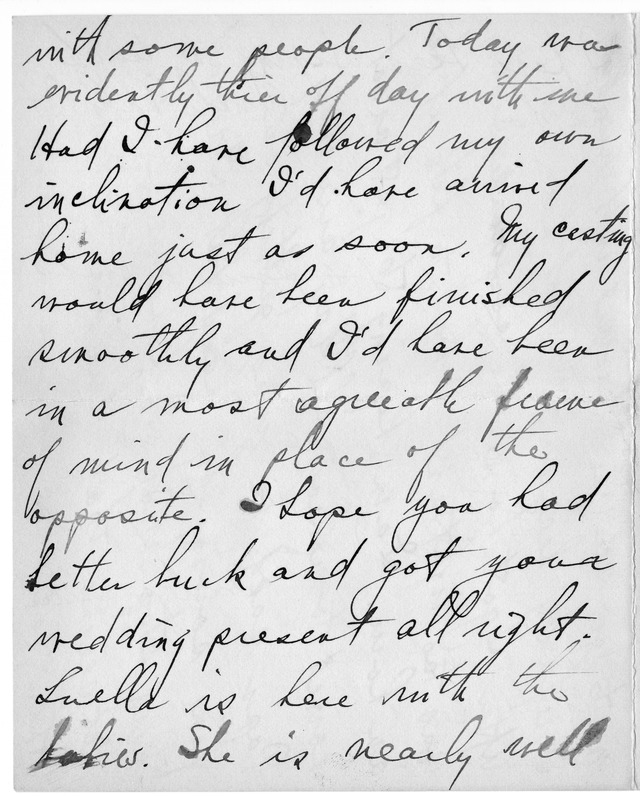 with some people. Today was
evidently thier off day with me
Had I have followed my own
inclination I'd have arrived
home just as soon. My casting
would have been finished
smoothly and I'd have been
in a most agreeable frame
of mind in place of the
opposite. I hope you had
better luck and got your
wedding present all right.
Luella is here with the
babies. She is nearly well